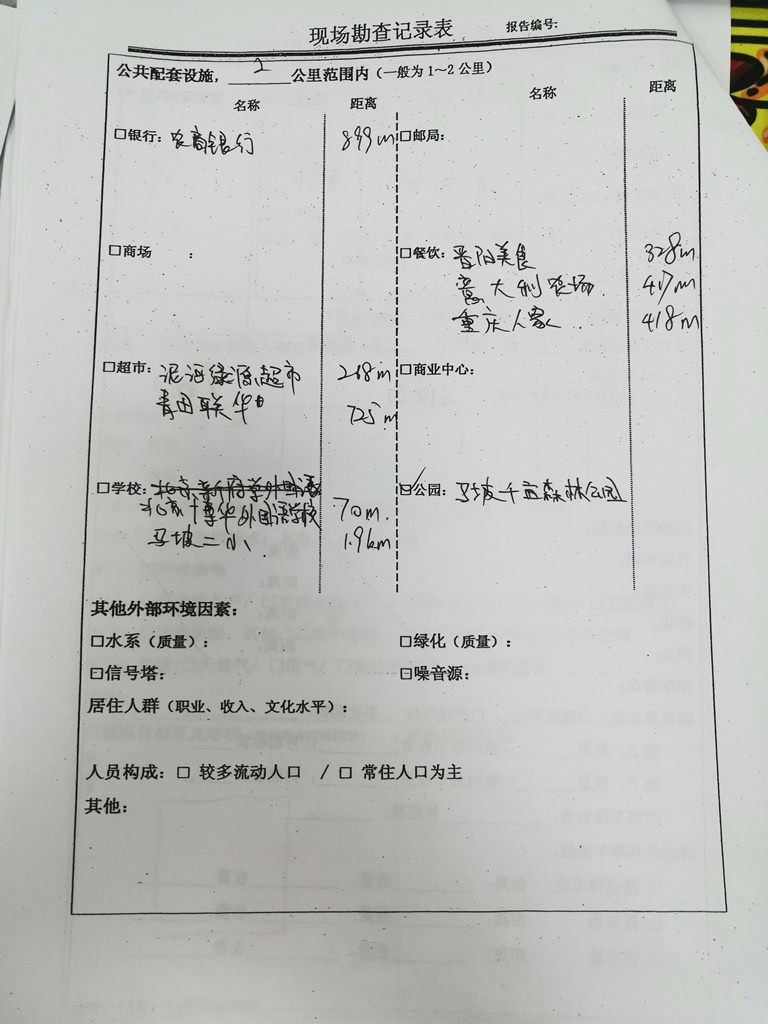 现场勘查记录表 报告编号:
公共配套设施, 2 公里范围内（一般为 1～2 公里）
名称 距离 名称 距离
□银行: 农商银行 899m □邮局:
□商场 : □餐饮: 晋阳美食 328m
意大利农场 417m
重庆人家 418m
□超市: 泥河绿源超市 268m □商业中心:
青田联华 725m
□学校: 北京新府学外国语 □公园: 马坡千亩森林公园
北京博华外国语学校 70m.
马坡二小 1.9km
其他外部环境因素:
□水系（质量）: □绿化（质量）:
□信号塔: □噪音源:
居住人群（职业、收入、文化水平）:
人员构成: □ 较多流动人口 / □ 常住人口为主
其他: